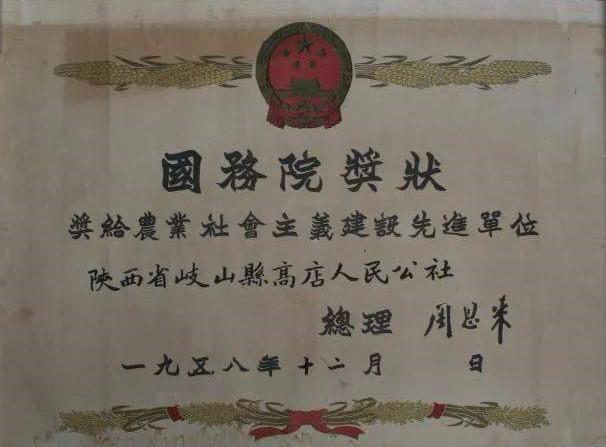 國務院獎狀
獎給農業社會主義建設先進單位
陝西省岐山縣高店人民公社
總理 周恩来
一九五八年十二月 日